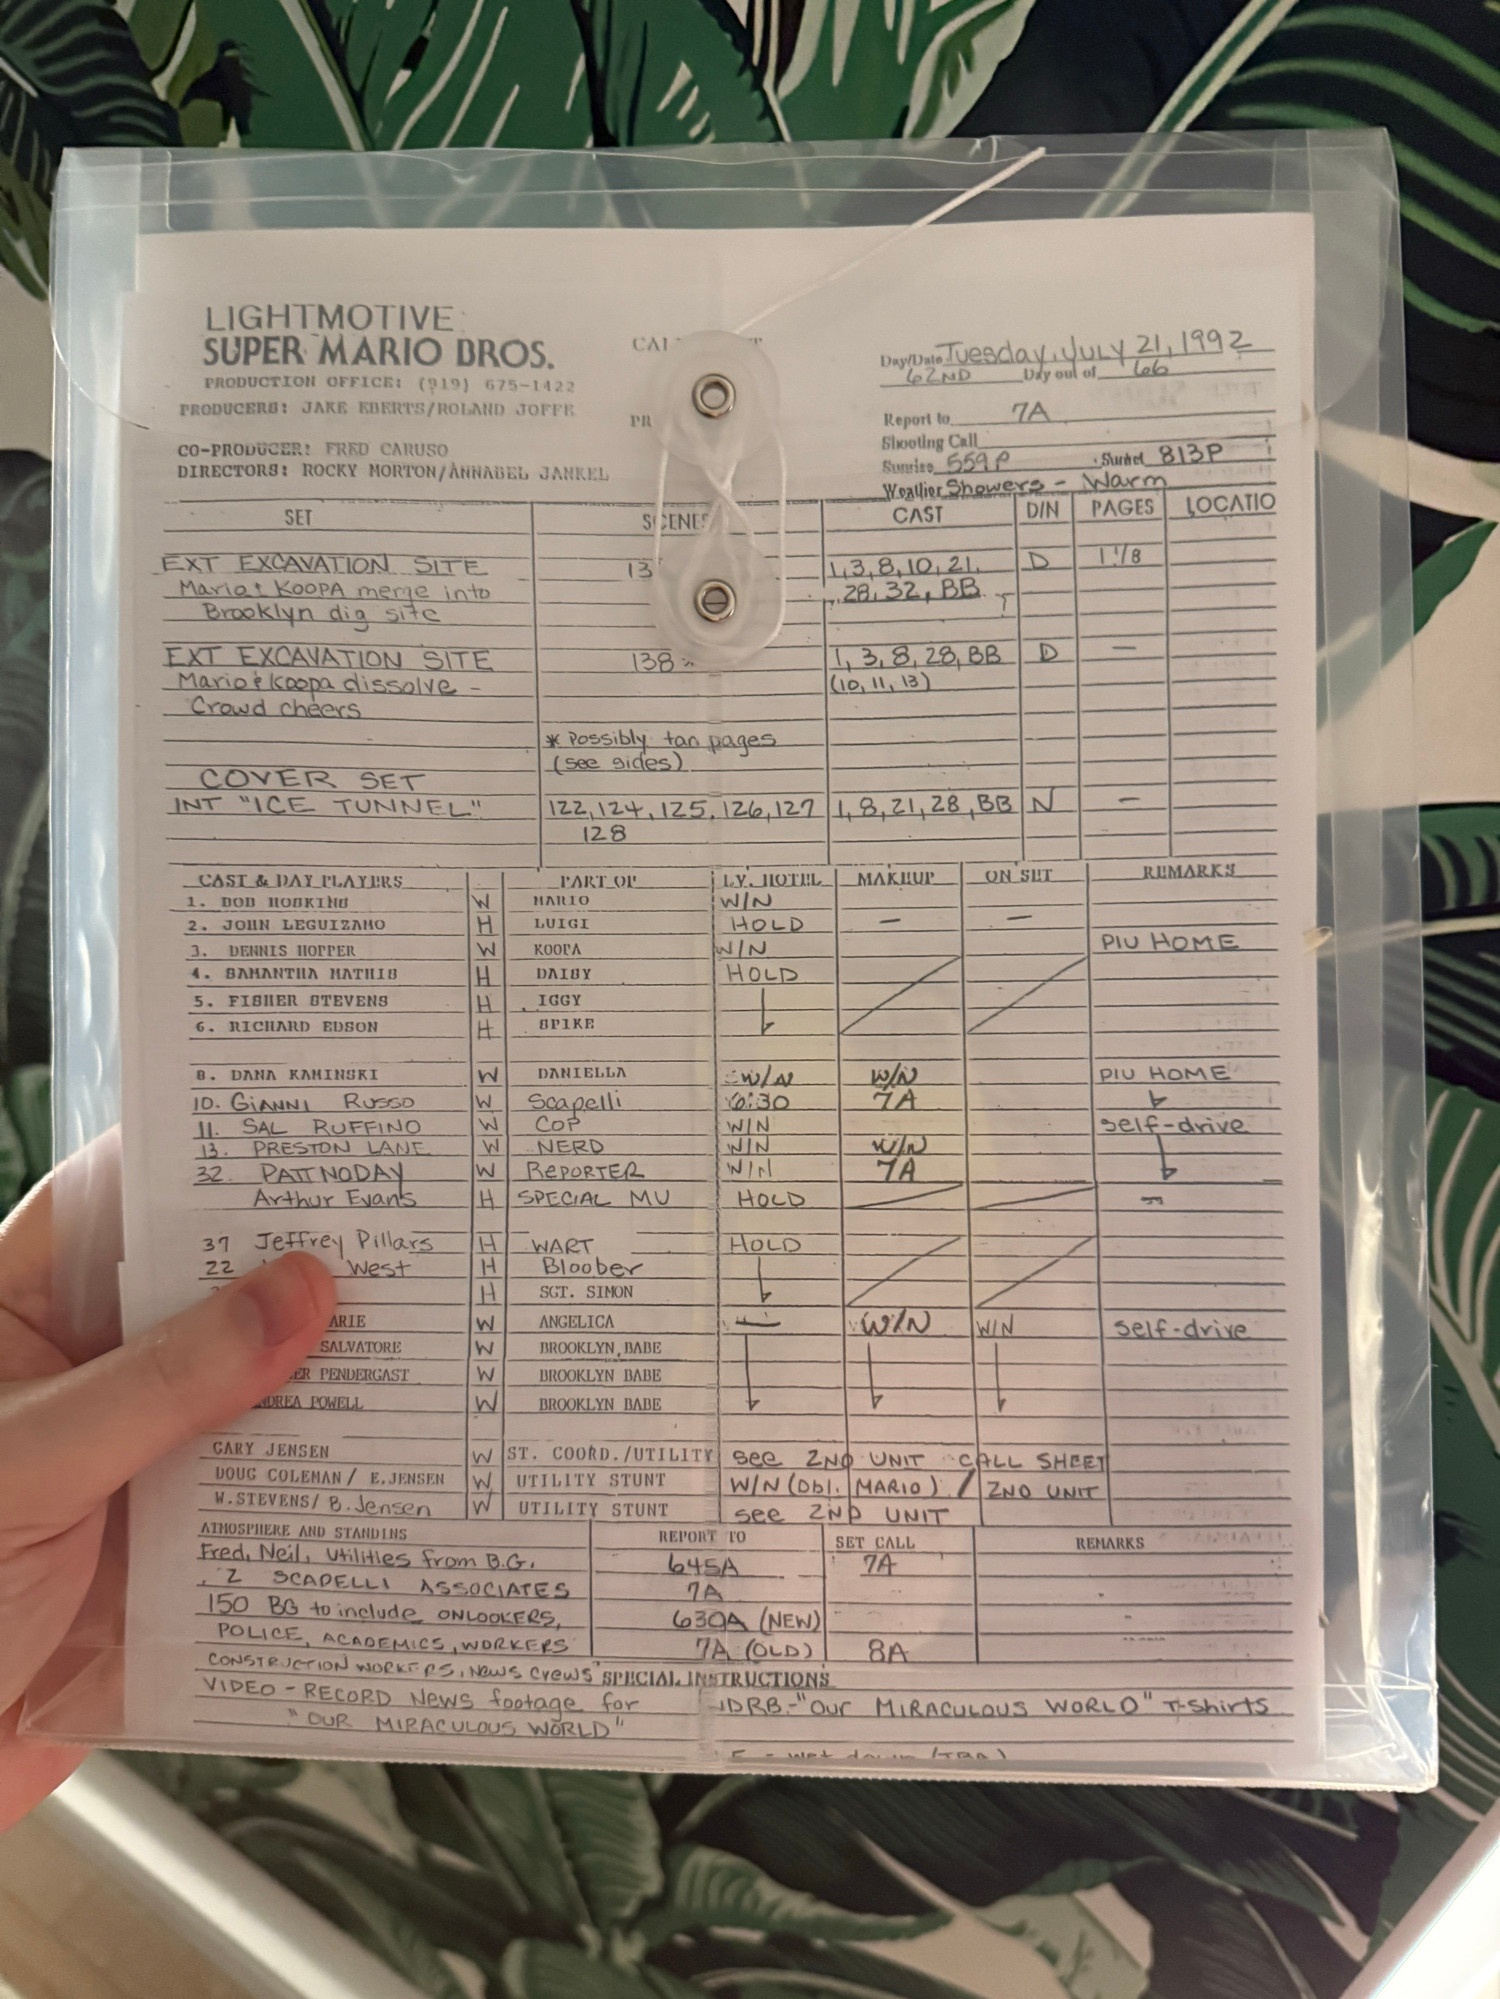 LIGHTMOTIVE
SUPER MARIO BROS.
PRODUCTION OFFICE: (919) 675-1422
PRODUCERS: JAKE EBERTS/ROLAND JOFFE
CO-PRODUCER: FRED CARUSO
DIRECTORS: ROCKY MORTON/ANNABEL JANKEL
Day/Date Tuesday, July 21, 1992
62ND Day out of 66
Report to 7A
Shooting Call
Sunrise 559P Sunset 813P
Weather Showers - Warm
SET SCENES CAST D/N PAGES LOCATIO
EXT EXCAVATION SITE 1,3,8,10,21, D 1 1/8
Mario & KOOPA merge into 28, 32, BB
Brooklyn dig site
EXT EXCAVATION SITE 138 1, 3, 8, 28, BB D —
Mario & Koopa dissolve - (10, 11, 13)
Crowd cheers
* Possibly tan pages
(see sides)
COVER SET
INT "ICE TUNNEL" 122, 124, 125, 126, 127 1, 8, 21, 28, BB N —
128
CAST & DAY PLAYERS PART OF LV. HOTEL MAKEUP ON SET REMARKS
1. BOB HOSKINS W MARIO W/N
2. JOHN LEGUIZAMO H LUIGI HOLD — —
3. DENNIS HOPPER W KOOPA W/N PIU HOME
4. SAMANTHA MATHIS H DAISY HOLD
5. FISHER STEVENS H IGGY
6. RICHARD EDSON H SPIKE
8. DANA KAMINSKI W DANIELLA W/N W/N PIU HOME
10. GIANNI RUSSO W Scapelli 6:30 7A
11. SAL RUFFINO W COP W/N self-drive
13. PRESTON LANE W NERD W/N W/N
32. PATT NODAY W REPORTER W/N 7A
Arthur Evans H SPECIAL MU HOLD
37 Jeffrey Pillars H WART HOLD
22 West H Bloober
H SGT. SIMON
ARIE W ANGELICA — W/N W/N self-drive
SALVATORE W BROOKLYN BABE
ER PENDERGAST W BROOKLYN BABE
NDREA POWELL W BROOKLYN BABE
GARY JENSEN W ST. COORD./UTILITY see 2ND UNIT CALL SHEET
DOUG COLEMAN / E.JENSEN W UTILITY STUNT W/N (Dbl. MARIO) / 2ND UNIT
W.STEVENS/ B.Jensen W UTILITY STUNT see 2ND UNIT
ATMOSPHERE AND STANDINS REPORT TO SET CALL REMARKS
Fred, Neil, Utilities from B.G. 645A 7A
2 SCAPELLI ASSOCIATES 7A
150 BG to include ONLOOKERS, 630A (NEW)
POLICE, ACADEMICS, WORKERS 7A (OLD) 8A
CONSTRUCTION WORKERS, News Crews SPECIAL INSTRUCTIONS
VIDEO - RECORD News footage for WDRB - "Our MIRACULOUS WORLD" T-Shirts
"OUR MIRACULOUS WORLD"